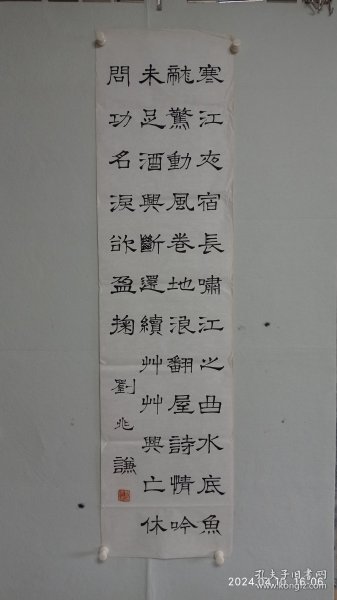 寒江夜宿長嘯江之曲水底魚
龍驚動風卷地浪翻屋詩情吟
未足酒興斷還續艸艸興亡休
問功名淚欲盈掬
劉兆謙
孔夫子旧书网
2024.04.10 16:06